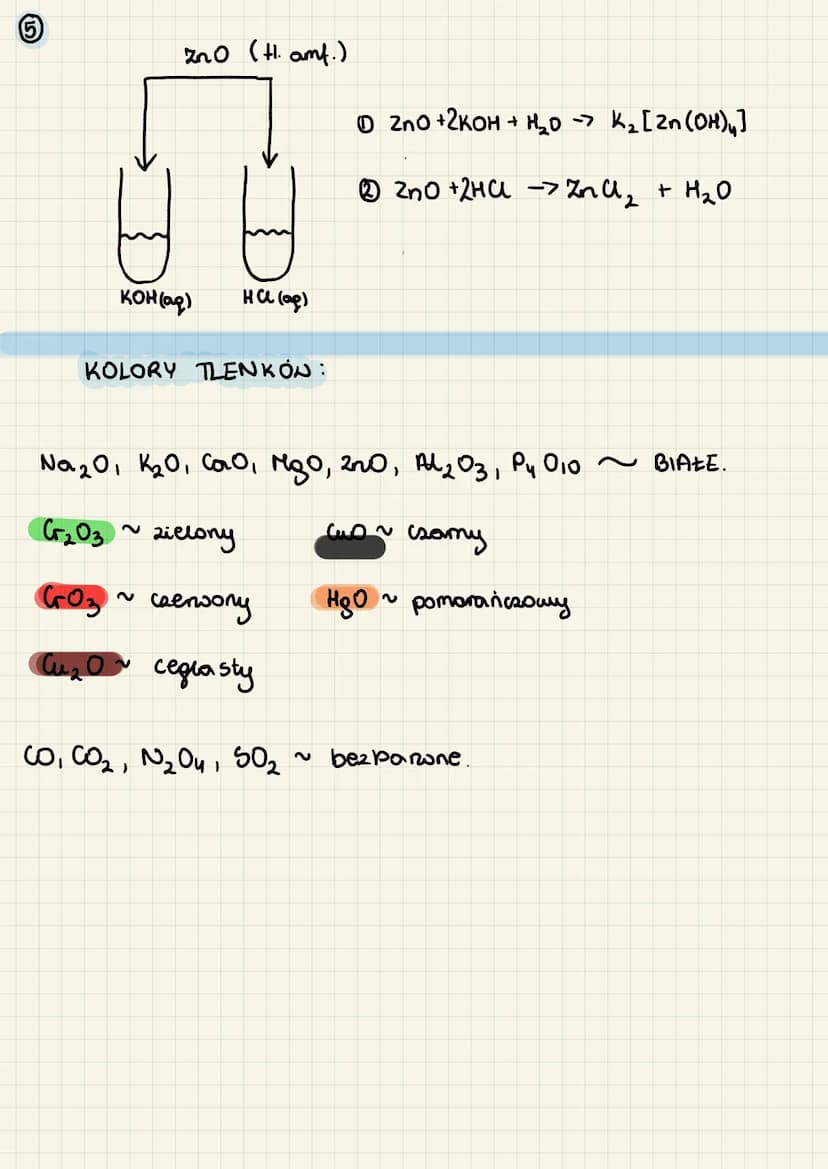 ⑤
ZnO (tl. amf.)
① ZnO + 2KOH + H₂O → K₂[Zn(OH)₄]
② ZnO + 2HCl → ZnCl₂ + H₂O
KOH(aq) HCl(aq)
KOLORY TLENKÓW:
Na₂O, K₂O, CaO, MgO, ZnO, Al₂O₃, P₄O₁₀ ~ BIAŁE.
Cr₂O₃ ~ zielony CuO ~ czarny
CrO₃ ~ czerwony HgO ~ pomarańczowy
Cu₂O ~ ceglasty
CO, CO₂, N₂O₄, SO₂ ~ bezbarwne.